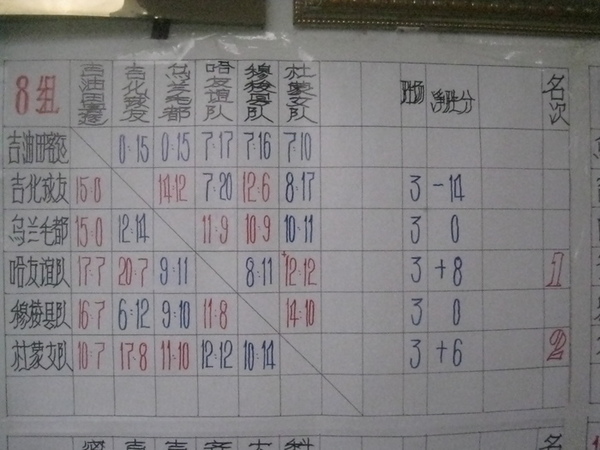 8组 吉油田客运 吉化球友 乌兰毛都 哈友谊队 穆棱县队 杜蒙支队 胜场 净胜分 名次
吉油田客运 0:15 0:15 7:17 7:16 7:10
吉化球友 15:0 14:12 7:20 12:6 8:17 3 -14
乌兰毛都 15:0 12:14 11:9 10:9 10:11 3 0
哈友谊队 17:7 20:7 9:11 8:11 +12:12 3 +8 1
穆棱县队 16:7 6:12 9:10 11:8 14:10 3 0
杜蒙支队 10:7 17:8 11:10 12:12 10:14 3 +6 2